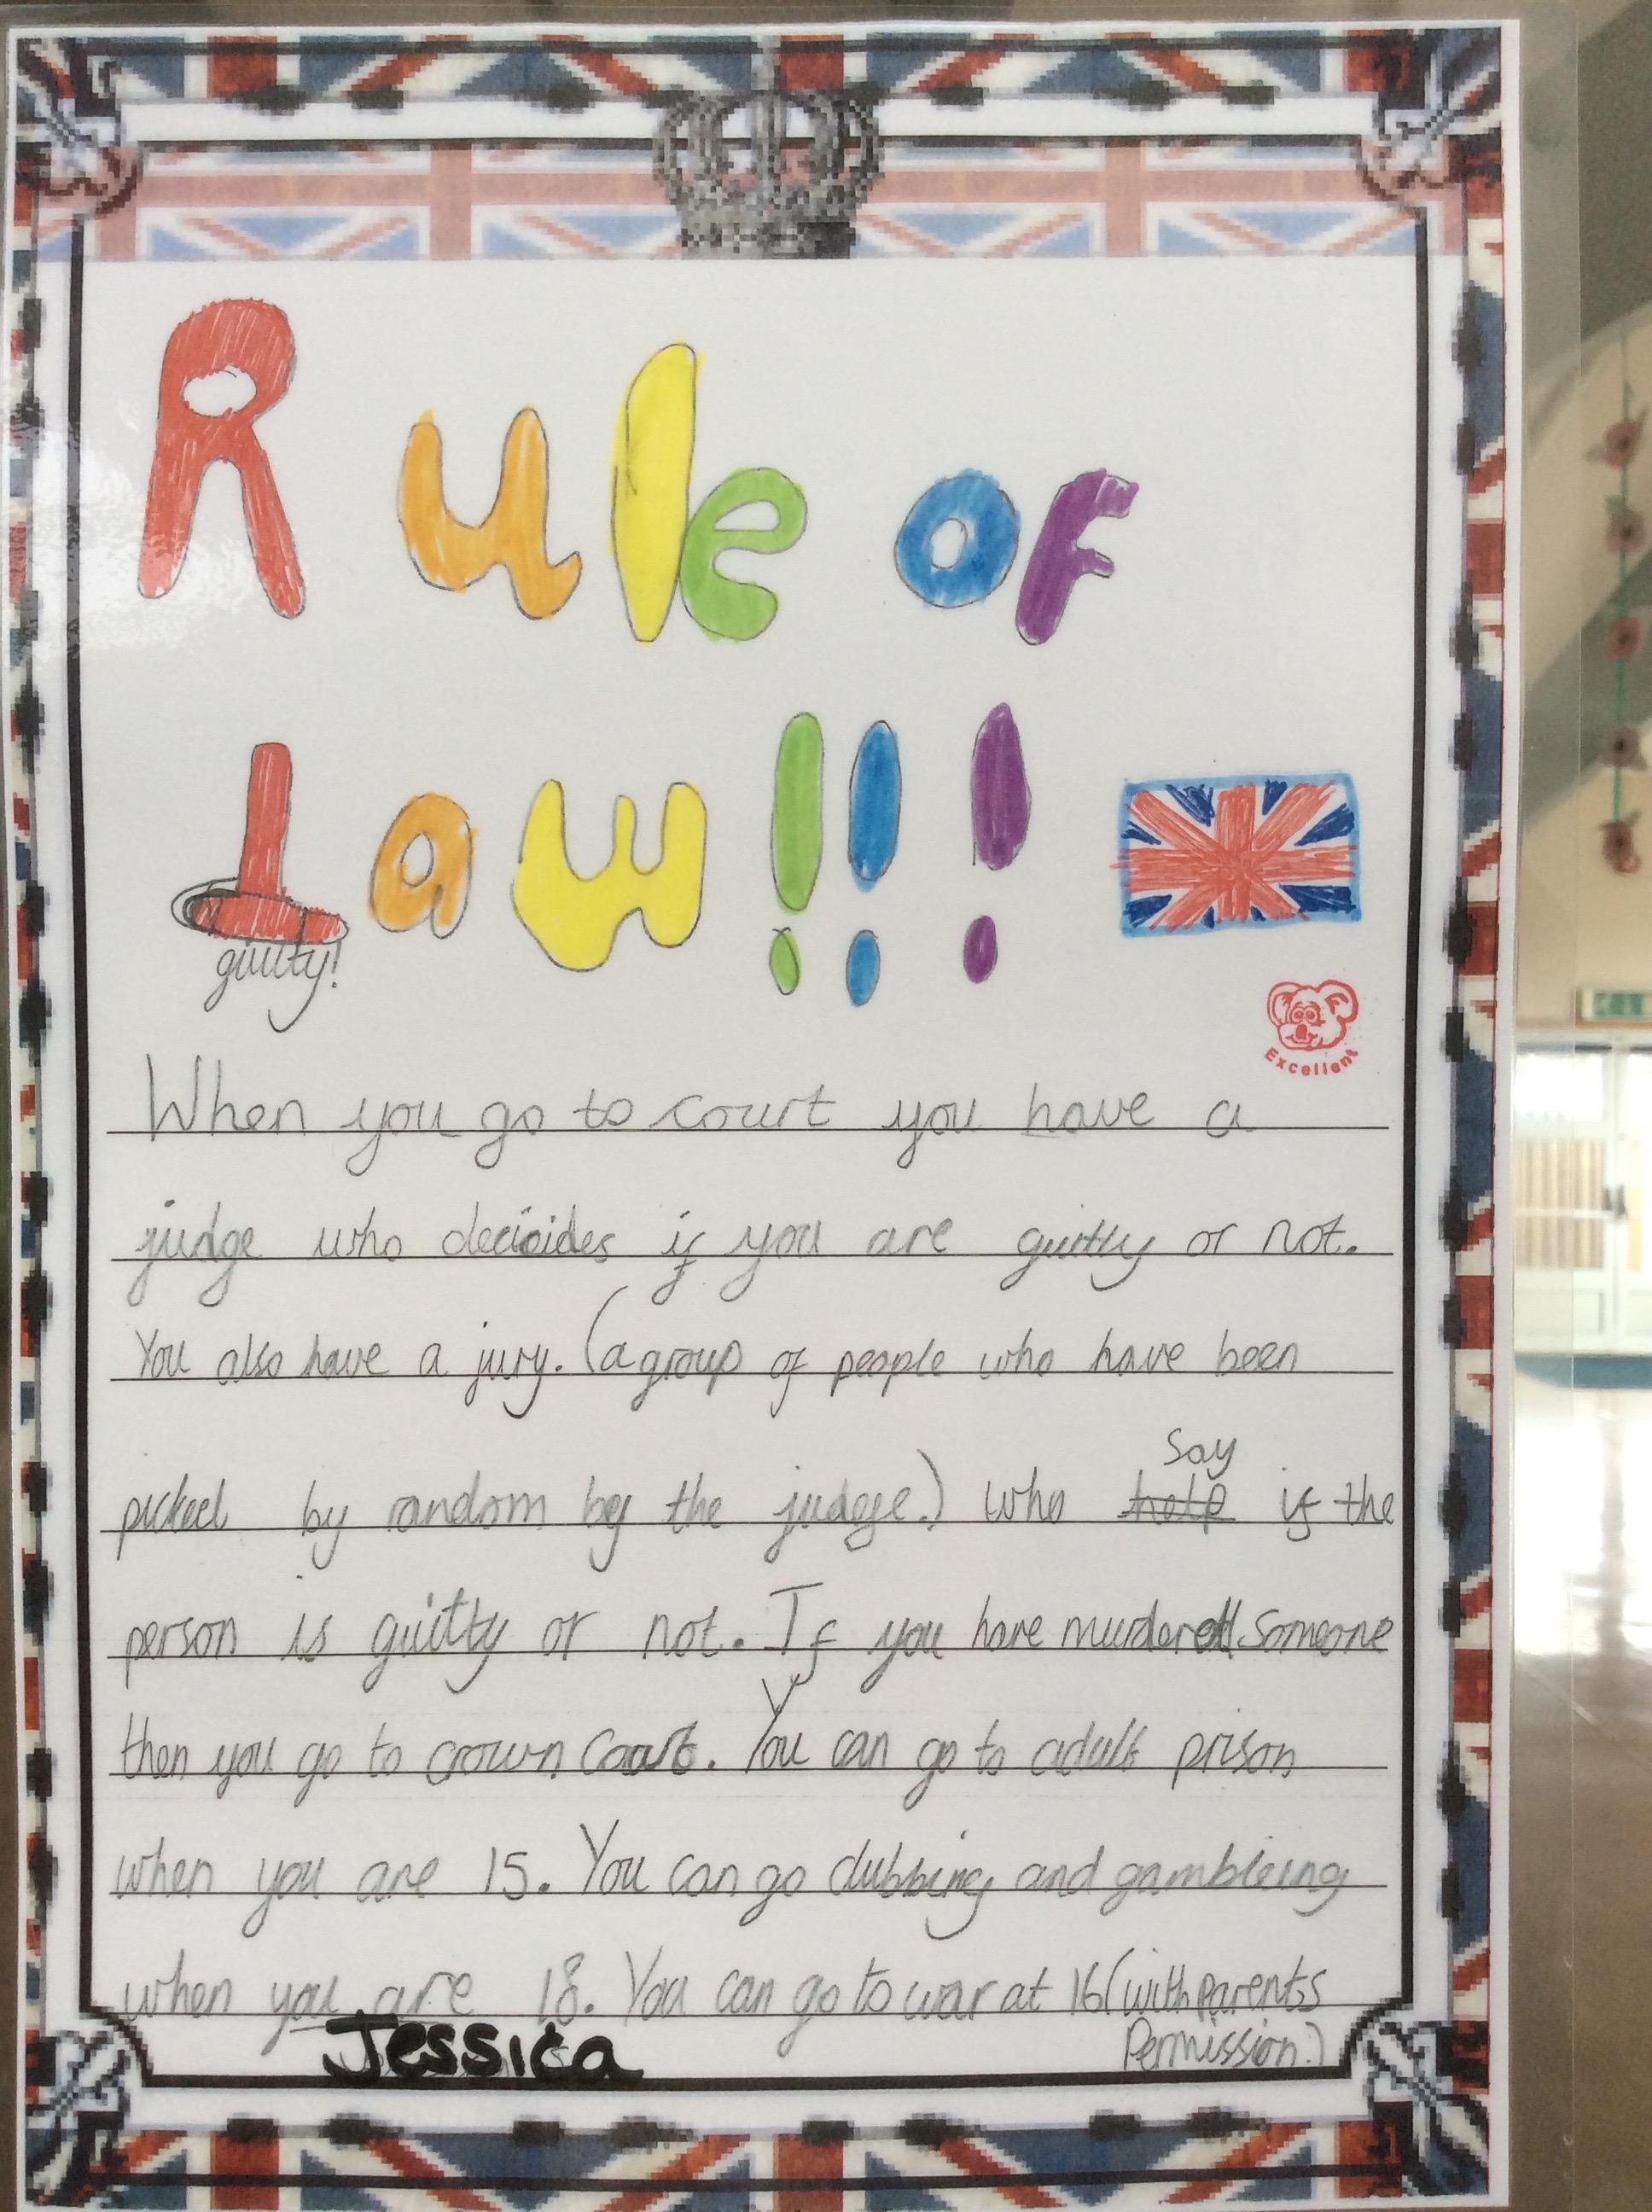 Rule of
Law!!!
guilty!
Excellent
When you go to court you have a
judge who decicides if you are guilty or not.
You also have a jury. (a group of people who have been
picked by random by the judge.) who help say if the
person is guilty or not. If you have murdered someone
then you go to crown Court. You can go to adult prison
when you are 15. You can go clubbing and gambleing
when you are 18. You can go to war at 16 (with parents
Permission.)
Jessica